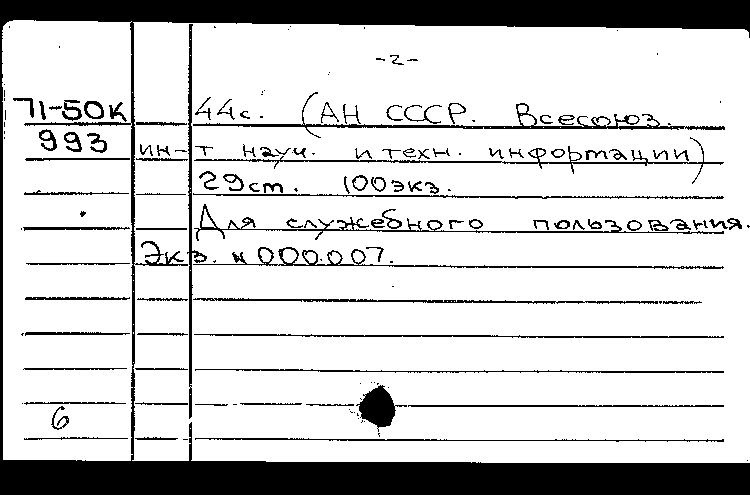 -2-
71-50К 44с. (АН СССР. Всесоюз.
993 ин-т науч. и техн. информации)
29см. 100экз.
Для служебного пользования.
Экз. N 000007.
6